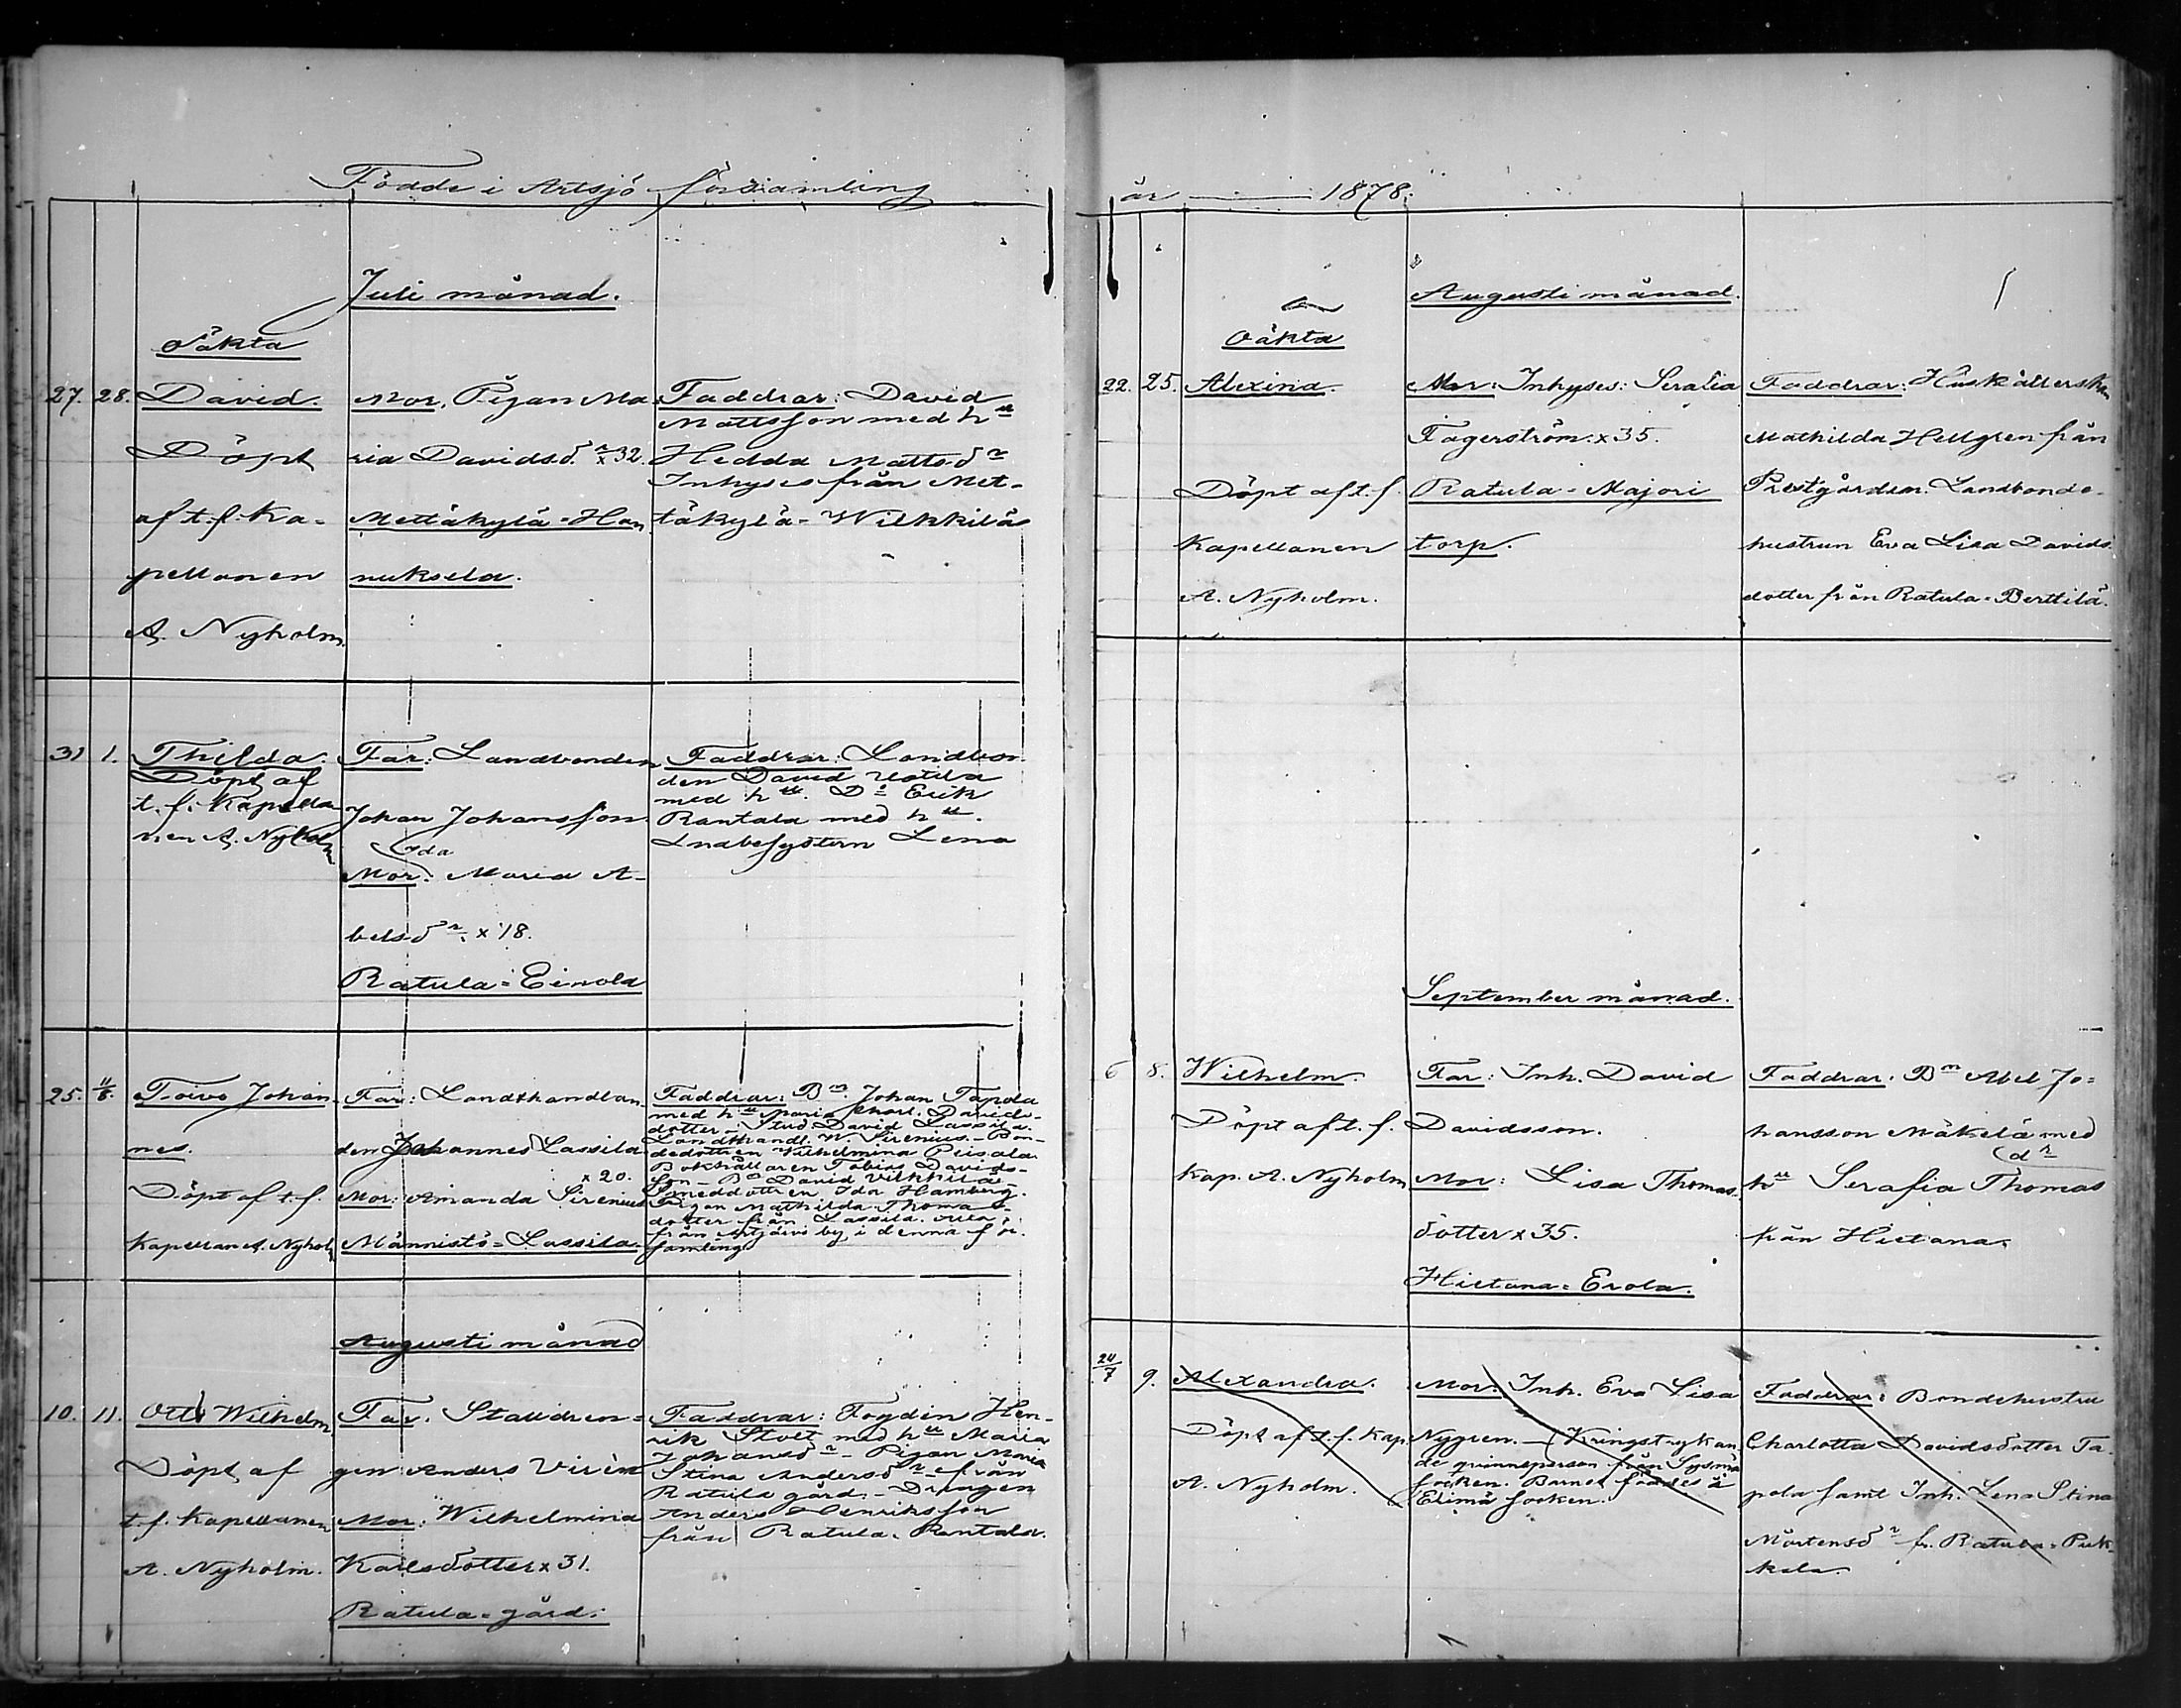 Födde i Artsjö församling
Juli månad.
Oäkta
27. 28. David.
Döpt
af t. f. Ka-
pellanen
A. Nyholm.
Mor, Pigan Ma-
ria Davidsdr x 32.
Mettäkylä-Han
nuksela.
Faddrar: David
Mattsson med hu
Hedda Mattsdr
Inhyses från Met-
täkylä-Wilkkilä
31 1. Thilda.
Döpt af
t. f. Kapella-
nen A. Nyholm
Far: Landbonden
Johan Johansson
Ida
Mor: Maria A-
belsdr x 18.
Ratula-Einola
Faddrar: Landbon-
den David Uotila
med hu. Do Erik
Rantala med hu.
Lena
25. 11/8. Toivo Johan-
nes.
Döpt af t. f.
Kapellan A. Nyholm
Far: Landthandlan-
den Johannes Lassila
x 20.
Mor: Amanda Sirenius
Männistö-Lassila.
Faddrar: Bn. Johan Tapola
med hu Maria Charl. Davids-
dotter - Stud. David Lassila.
Landthandl. W. Sirenius - Bon-
dedottren Wilhelmina Peisala
Bokhållaren Tobias Davids-
son - Bn David Vilkkilä -
Smeddottren Ida Hamberg.
Pigan Mathilda Thomas-
dotter från Lassila. Alla
från Artjärvi by, i denna för-
samling
Augusti månad
10. 11. Otto Wilhelm
Döpt af
t. f. Kapellanen
A. Nyholm.
Far. Stalldren-
gen Anders Virèn
Mor: Wilhelmina
Karlsdotter x 31.
Ratula-gård.
Faddrar: Fogden Hen-
rik med hu Maria
Johansdr - Pigan Maria
Stina Andersdr från
Ratula gård. - Drängen
Anders Henriksson
från Ratula-Rantala.
år 1878.
Augusti månad.
Oäkta
22. 25. Alexina.
Döpt af t. f.
Kapellanen
A. Nyholm.
Mor: Inhyses: Serafia
Fagerström x 35.
Ratula-Majori
torp.
Faddrar: Hushållerskan
Mathilda Hellgren från
Prestgården. Landbonde-
hustrun Eva Lisa Davids
dotter från Ratula-Berttilä.
September månad.
6 8. Wilhelm.
Döpt af t. f.
Kap. A. Nyholm
Far: Inh. David
Davidsson.
Mor: Lisa Thomas-
dotter x 35.
Hietana-Erola.
Faddrar. Bn Abel Jo-
hansson Mäkelä med
dr
hu Serafia Thomas
från Hietana.
24/7 9. Alexandra.
Döpt af t. f. Kap.
A. Nyholm.
Mor. Inh. Eva Lisa
Nygren. - (Kringstrykan
de qvinnsperson från Sysmä
socken. Barnet föddes i
Elimä socken.
Faddrar: Bondehustru
Charlotta Davidsdotter Ta-
pola samt Inh. Lena Stina
Mårtensdr fr. Ratula-Puk-
kala.